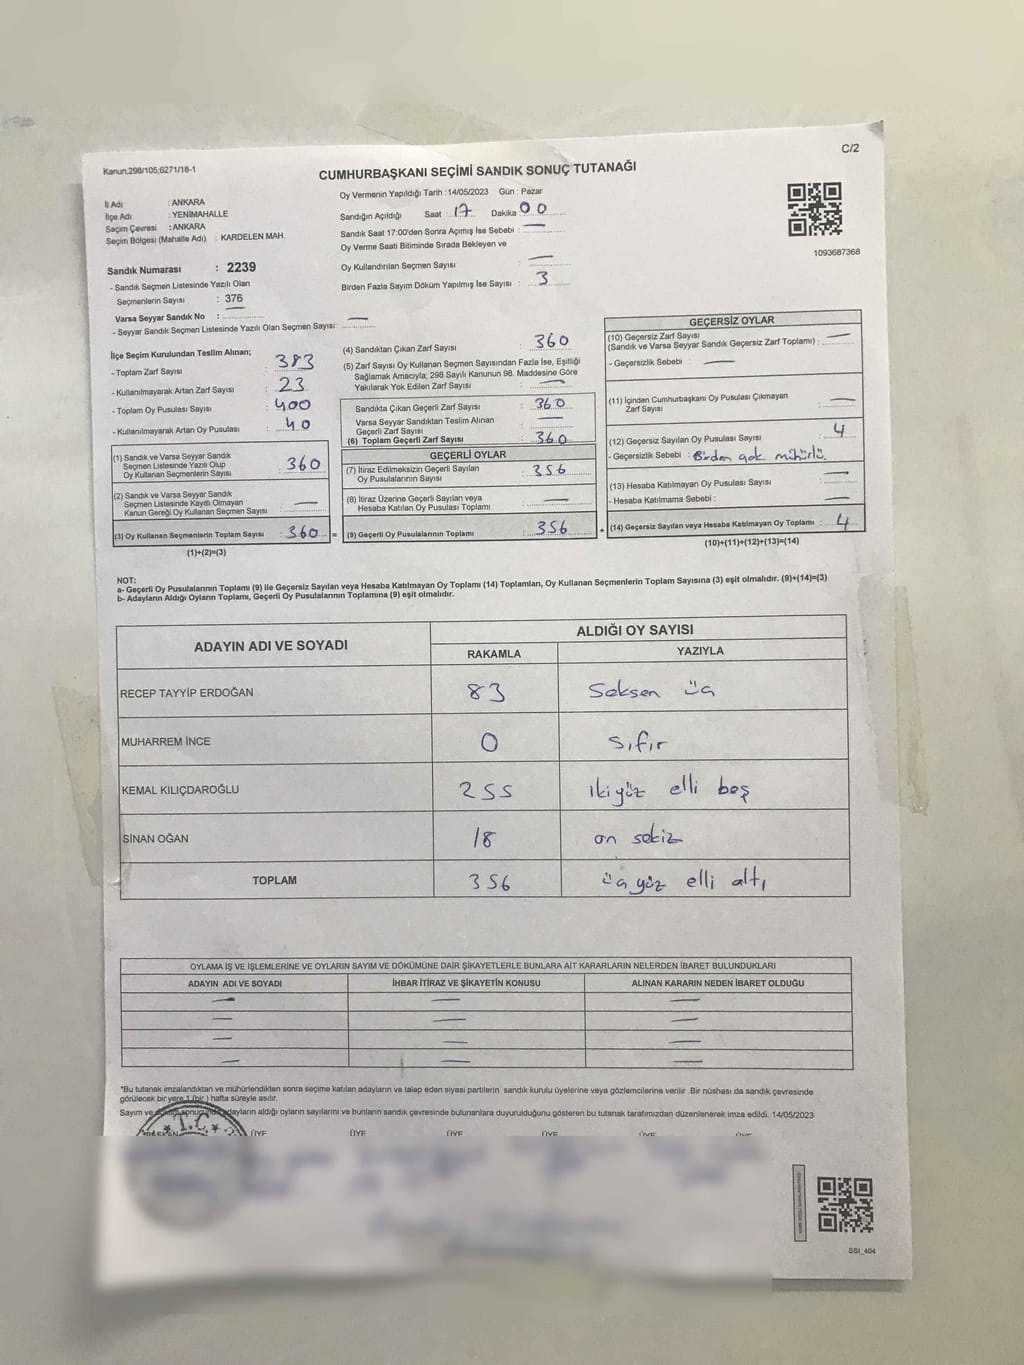 C/2
Kanun;298/105;6271/18-1
CUMHURBAŞKANI SEÇİMİ SANDIK SONUÇ TUTANAĞI
Oy Vermenin Yapıldığı Tarih :14/05/2023 Gün : Pazar
İl Adı : ANKARA
İlçe Adı : YENİMAHALLE
Seçim Çevresi : ANKARA
Seçim Bölgesi (Mahalle Adı) : KARDELEN MAH.
Sandığın Açıldığı Saat : 17 Dakika 00
Sandık Saat 17:00'den Sonra Açımış İse Sebebi : —
Oy Verme Saati Bitiminde Sırada Bekleyen ve
Oy Kullandırılan Seçmen Sayısı : —
Birden Fazla Sayım Döküm Yapılmış İse Sayısı : 3
1093687368
Sandık Numarası : 2239
- Sandık Seçmen Listesinde Yazılı Olan
Seçmenlerin Sayısı : 376
Varsa Seyyar Sandık No : —
- Seyyar Sandık Seçmen Listesinde Yazılı Olan Seçmen Sayısı: —
İlçe Seçim Kurulundan Teslim Alınan;
- Toplam Zarf Sayısı : 383
- Kullanılmayarak Artan Zarf Sayısı : 23
- Toplam Oy Pusulası Sayısı : 400
- Kullanılmayarak Artan Oy Pusulası : 40
(1) Sandık ve Varsa Seyyar Sandık
Seçmen Listesinde Yazılı Olup
Oy Kullanan Seçmenlerin Sayısı : 360
(2) Sandık ve Varsa Seyyar Sandık
Seçmen Listesinde Kayıtlı Olmayan
Kanun Gereği Oy Kullanan Seçmen Sayısı : —
(3) Oy Kullanan Seçmenlerin Toplam Sayısı : 360 =
(1)+(2)=(3)
(4) Sandıktan Çıkan Zarf Sayısı : 360
(5) Zarf Sayısı Oy Kullanan Seçmen Sayısından Fazla İse, Eşitliği
Sağlamak Amacıyla; 298 Sayılı Kanunun 98. Maddesine Göre
Yakılarak Yok Edilen Zarf Sayısı : —
Sandıkta Çıkan Geçerli Zarf Sayısı : 360
Varsa Seyyar Sandıktan Teslim Alınan
Geçerli Zarf Sayısı : —
(6) Toplam Geçerli Zarf Sayısı : 360
GEÇERLİ OYLAR
(7) İtiraz Edilmeksizin Geçerli Sayılan
Oy Pusulalarının Sayısı : 356
(8) İtiraz Üzerine Geçerli Sayılan veya
Hesaba Katılan Oy Pusulası Toplamı : —
(9) Geçerli Oy Pusulalarının Toplamı : 356 +
GEÇERSİZ OYLAR
(10) Geçersiz Zarf Sayısı
(Sandık ve Varsa Seyyar Sandık Geçersiz Zarf Toplamı) : —
- Geçersizlik Sebebi : —
(11) İçinden Cumhurbaşkanı Oy Pusulası Çıkmayan
Zarf Sayısı : —
(12) Geçersiz Sayılan Oy Pusulası Sayısı : 4
- Geçersizlik Sebebi : Birden çok mühürlü.
(13) Hesaba Katılmayan Oy Pusulası Sayısı : —
- Hesaba Katılmama Sebebi : —
(14) Geçersiz Sayılan veya Hesaba Katılmayan Oy Toplamı : 4
(10)+(11)+(12)+(13)=(14)
NOT:
a- Geçerli Oy Pusulalarının Toplamı (9) ile Geçersiz Sayılan veya Hesaba Katılmayan Oy Toplamı (14) Toplamları, Oy Kullanan Seçmenlerin Toplam Sayısına (3) eşit olmalıdır. (9)+(14)=(3)
b- Adayların Aldığı Oyların Toplamı, Geçerli Oy Pusulalarının Toplamına (9) eşit olmalıdır.
ADAYIN ADI VE SOYADI ALDIĞI OY SAYISI
RAKAMLA YAZIYLA
RECEP TAYYİP ERDOĞAN 83 Seksen üç
MUHARREM İNCE 0 sıfır
KEMAL KILIÇDAROĞLU 255 ikiyüz elli beş
SİNAN OĞAN 18 on sekiz
TOPLAM 356 üçyüz elli altı
OYLAMA İŞ VE İŞLEMLERİNE VE OYLARIN SAYIM VE DÖKÜMÜNE DAİR ŞİKAYETLERLE BUNLARA AİT KARARLARIN NELERDEN İBARET BULUNDUKLARI
ADAYIN ADI VE SOYADI İHBAR İTİRAZ VE ŞİKAYETİN KONUSU ALINAN KARARIN NEDEN İBARET OLDUĞU
— — —
— — —
— — —
— — —
*Bu tutanak imzalandıktan ve mühürlendikten sonra seçime katılan adayların ve talep eden siyasi partilerin sandık kurulu üyelerine veya gözlemcilerine verilir. Bir nüshası da sandık çevresinde
görülecek bir yere 1 (bir) hafta süreyle asılır.
Sayım ve döküm sonucunda adayların aldığı oyların sayılarını ve bunların sandık çevresinde bulunanlara duyurulduğunu gösteren bu tutanak tarafımızdan düzenlenerek imza edildi. 14/05/2023
T.C.
BAŞKAN ÜYE ÜYE ÜYE ÜYE ÜYE ÜYE
SSI_404